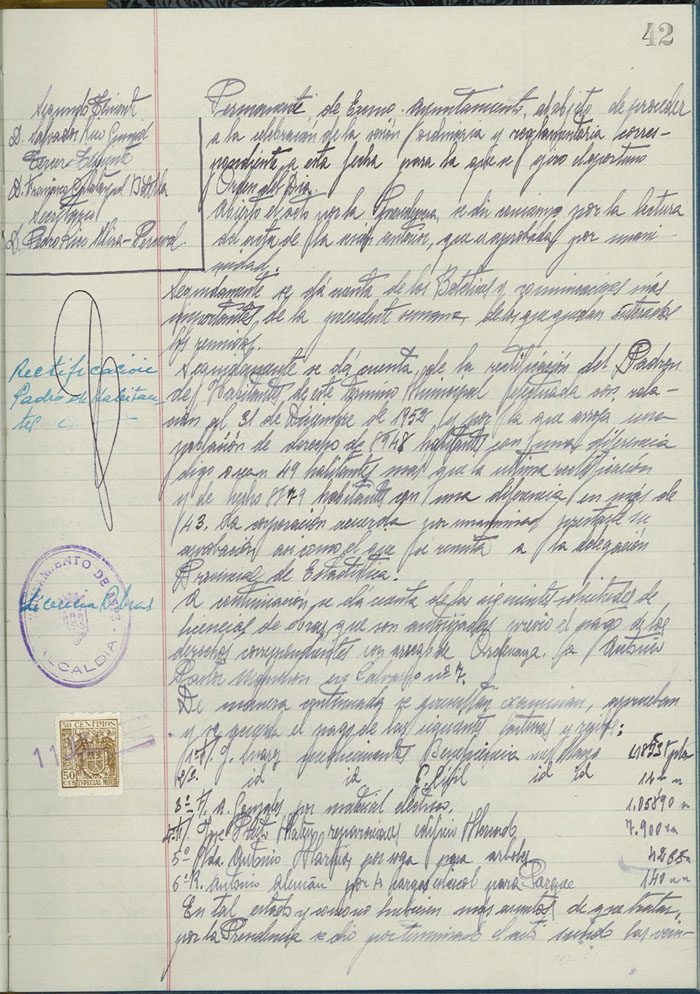 42
Segundo Teniente
D. Salvador Rico
Tercero Teniente
D.
Secretario
D. Pedro Rico Mira-Perceval
Permanente de Excmo. Ayuntamiento, al objeto de proceder
a la celebracion de la sesión ordinaria y reglamentaria corres-
pondiente a esta fecha para la que se giro el oportuno
Orden del Dia.
Abierto el acto por la Presidencia, se dio comienzo por la lectura
del acta de la sesión anterior, que es aprobada por unani-
midad.
Seguidamente se dá cuenta de los Boletines y comunicaciones más
importantes de la precedente semana, de los que quedan enterados
los reunidos.
Rectificación
Padron de Habitan-
tes
Seguidamente se dá cuenta de la rectificación del Padron
de Habitantes de este termino Municipal efectuada con rela-
ción al 31 de Diciembre de 1952 y por la que arroja una
población de derecho de 8948 habitantes con una diferencia
digo o sean 49 habitantes mas que la ultima rectificación
y de hecho 8879 habitantes con una diferencia en más de
43. La corporación acuerda por unanimidad prestarle su
aprobación asi como el que se remita a la delegación
Provincial de Estadistica.
AYUNTAMIENTO DE
ALCALDIA
Licencias Obras
A continuación se dá cuenta de las siguientes solicitudes de
licencias de obras, que son autorizadas previo el pago de los
derechos correspondientes con arreglo de Ordenanza. Antonio
Pastor en Calvario nº 7.
De manera continuada se presentan, examinan, aprueban
y se acuerda el pago de las siguientes facturas y recibos:
50 CENTIMOS
50 CTS ESPECIAL MOVIL
1ª F/ J. Suarez medicamentos Beneficencia mes Mayo
2ª id id G. Civil id id
3ª F/ A. Gonzalez por material electrico. 1.058'90
4ª F/ José reparaciones edificio Mercado 7.900
5º Vda. Antonio por soga para arboles
6º R. Antonio Alemán por para Parque 140
En tal estado y como no hubiesen mas asuntos de que tratar,
por la Presidencia se dio por terminado el acto siendo las vein-